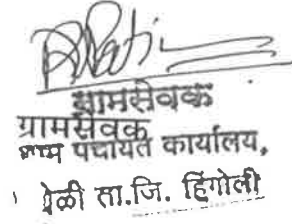 ग्रामसेवक
ग्रामसेवक
ग्राम पंचायत कार्यालय,
येळी ता.जि. हिंगोली